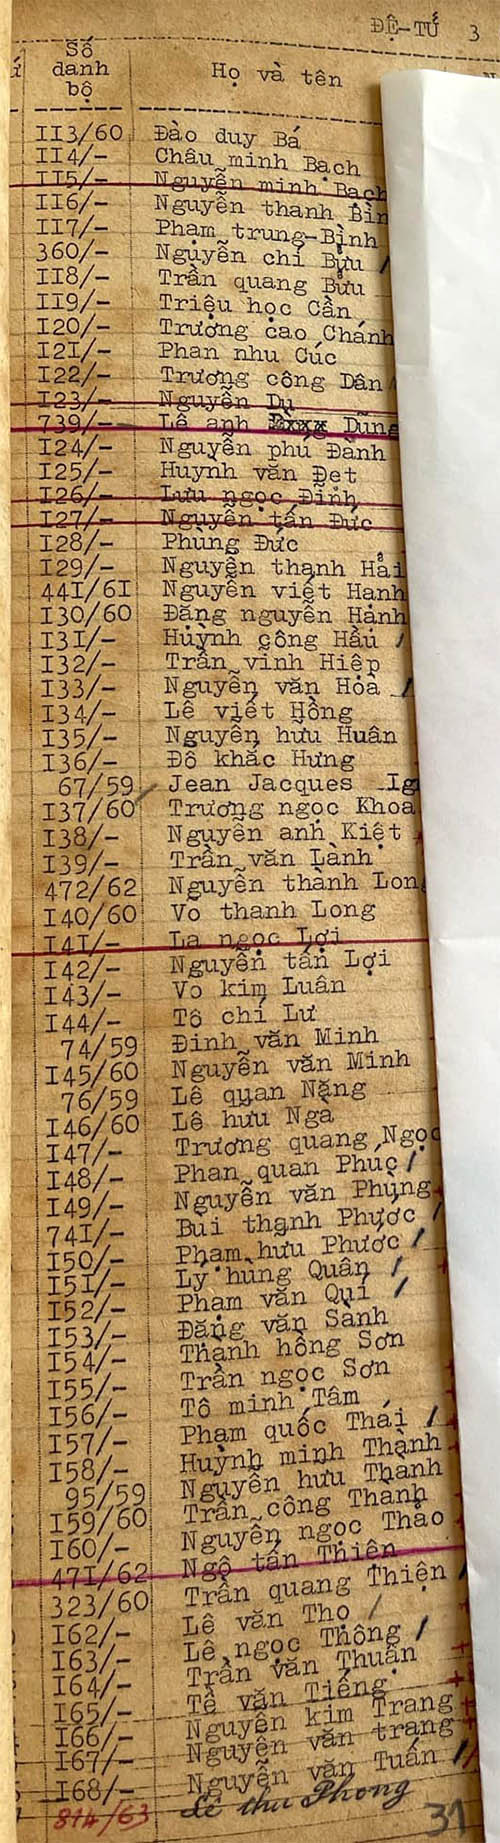 ĐỆ-TỨ 3
Số danh bộ Họ và tên
II3/60 Đào duy Bá
II4/- Châu minh Bạch
II5/- Nguyễn minh Bạch
II6/- Nguyễn thanh Bìn
II7/- Phạm trung-Bình
360/- Nguyễn chí Bửu /
II8/- Trần quang Bửu
II9/- Triệu học Cần
I20/- Trương cao Chánh
I2I/- Phan nhu Cúc
I22/- Trương công Dân
I23/- Nguyễn Dụ
739/- Lê anh Dũng
I24/- Nguyễn phú Đành
I25/- Huynh văn Đẹt
I26/- Lưu ngọc Đĩnh
I27/- Nguyễn tấn Đức
I28/- Phùng Đức
I29/- Nguyễn thanh Hải
44I/6I Nguyễn viết Hạnh
I30/60 Đặng nguyễn Hạnh
I3I/- Huỳnh công Hầu /
I32/- Trần vinh Hiệp
I33/- Nguyễn văn Hòa /
I34/- Lê viết Hồng
I35/- Nguyễn hữu Huân
I36/- Đỗ khắc Hưng
67/59 Jean Jacques Ig
I37/60 Trương ngọc Khoa
I38/- Nguyễn anh Kiệt
I39/- Trần văn Lành
472/62 Nguyễn thành Long
I40/60 Võ thanh Long
I4I/- La ngọc Lợi
I42/- Nguyễn tấn Lợi
I43/- Vo kim Luân
I44/- Tô chí Lư
74/59 Đinh văn Minh
I45/60 Nguyễn văn Minh
76/59 Lê quan Nặng
I46/60 Lê hữu Ngà
I47/- Trương quang Ngọc
I48/- Phan quan Phúc /
I49/- Nguyễn văn Phụng
74I/- Bùi thanh Phước /
I50/- Phạm hưu Phước /
I5I/- Lý hùng Quân /
I52/- Phạm văn Quí /
I53/- Đặng văn Sành
I54/- Thành hồng Sơn
I55/- Trần ngọc Sơn
I56/- Tô minh Tâm
I57/- Phạm quốc Thái /
I58/- Huỳnh minh Thành
95/59 Nguyễn hưu Thành
I59/60 Trần công Thanh
I60/- Nguyễn ngọc Thảo
47I/62 Ngô tấn Thiện
323/60 Trần quang Thiện /
I62/- Lê văn Thọ /
I63/- Lê ngọc Thông /
I64/- Trần văn Thuận
I65/- Tề văn Tiếng
I66/- Nguyễn kim Trang
I67/- Nguyễn văn trang
I68/- Nguyễn văn Tuấn /
814/63 Lê thu Phong
31